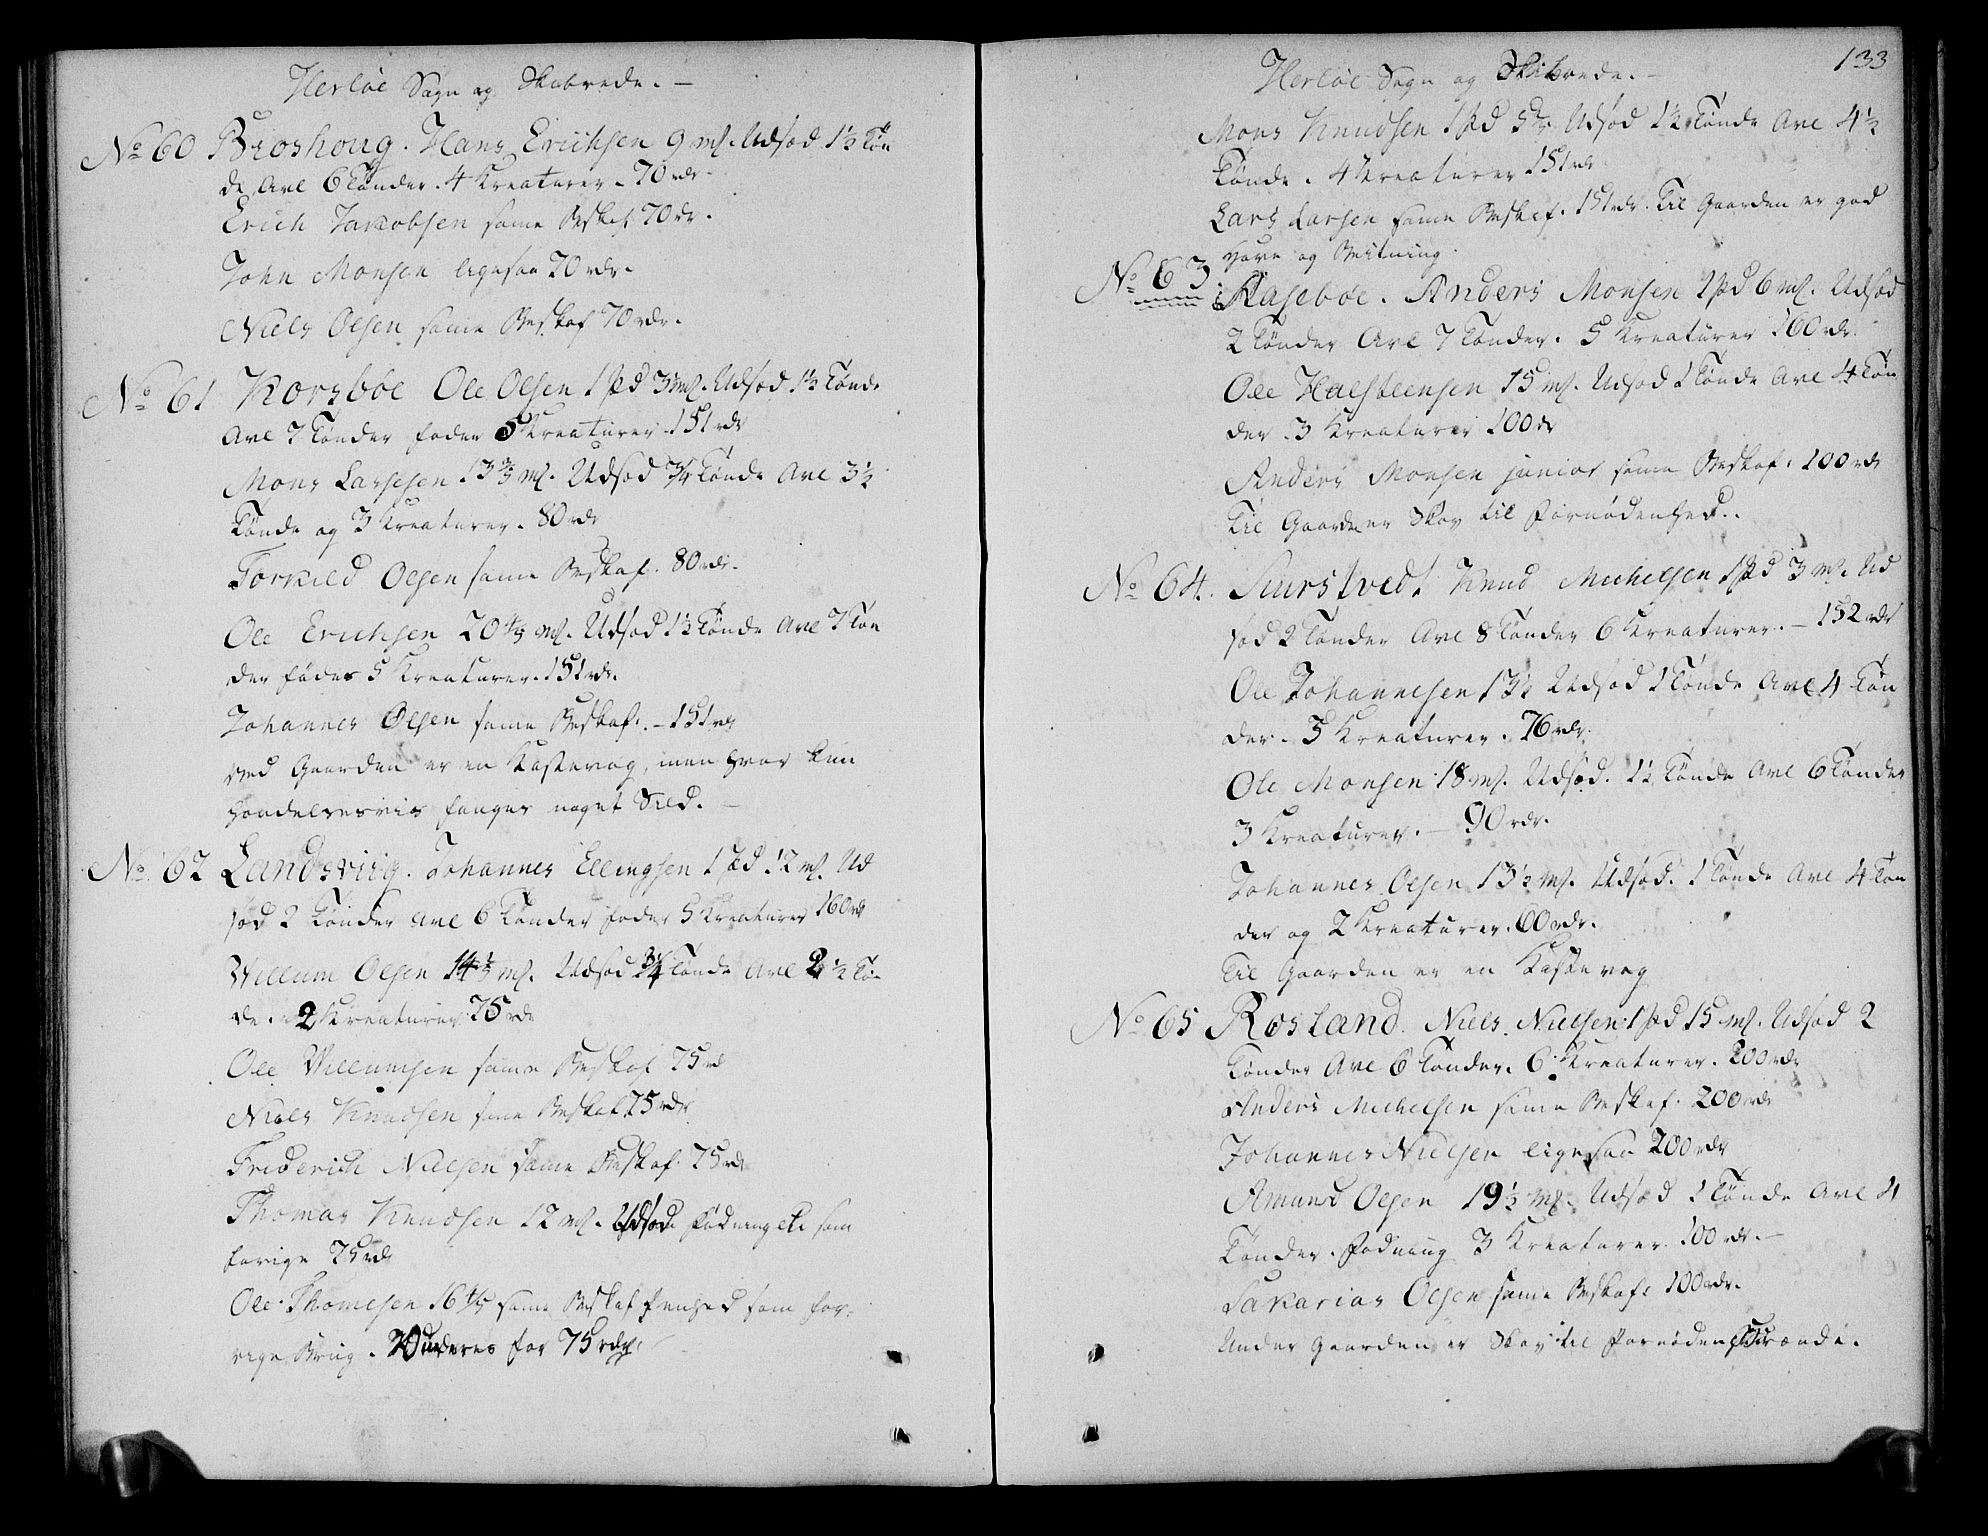 Herløe Sogn og Skibrede. –
No 60 Broshoug. Hans Erichsen 9 mk. Udsød 1½ Tøn
de, Avl 6 Tønder. 4 Kreaturer. 70 rdr.
Erich Jacobsen same Beskaf. 70 dr.
John Monsen ligesaa 70 rdr.
Niels Olsen same Beskaf 70 rdr.
No 61 Korsbøe Ole Olsen 1 pd 3 mk. Udsød 1½ Tønde
Avl 7 Tønder føder 5 Kreaturer 151 rdr
Mons Larsesen 13 mk. Udsød ¾ Tønde Avl 3½
Tønde og 3 Kreaturer. 80 rdr
Torkild Olsen same Beskaf. 80 rdr.
Ole Erichsen 20 mk. Udsød 1½ Tønde Avl 7 Tøn
der føder 5 Kreaturer. 151 rdr.
Johannes Olsen same Beskaf. – 151 rdr
Ved Gaarden er en Kastevaag, men hvor kun
hændelsesvis fanges noget Sild. –
No 62 Landsviig. Johannes Ellingsen 1 pd 12 mk. Ud
sød 2 Tønder Avl 6 Tønder føder 5 Kreaturer 160 rdr
Willum Olsen 14½ mk. Udsød ¾ Tønde Avl 2½ Tøn
de. 2 Kreaturer 75 rdr
Ole Willumsen same Beskaf 75 rd
Niels Knudsen same Beskaf 75 rdr
Friderich Nielsen same Beskaf. 75 rdr
Thomas Knudsen 12 mk. Udsød Fødning etc som
forrige 75 rdr
Ole Thomesen 16 4/5 same Beskaffenhed som for-
rige Brug. Vurderes for 75 rdr.
133
Herløe Sogn og Skibrede. –
Mons Knudsen 1 pd Udsød 1½ Tønde Avl 4½
Tønde. 4 Kreaturer 151 rdr
Lars Larsen same Beskaf. 151 rdr. Til Gaarden er god
Havn og Beitning.
No 63. Kasebøe. Anders Monsen 1 pd 6 mk. Udsød
2 Tønder Avl 7 Tønder. 5 Kreaturer 160 rdr.
Ole Halsteensen 15 mk. Udsød 1 Tønde Avl 4 Tøn
der. 3 Kreaturer 100 dr
Anders Monsen junior same Beskaf. 100 rdr
Til Gaarden er Skov til Fornødenhed.
No 64. Knud Michelsen 1 pd 3 mk. Ud
sød 2 Tønder Avl 8 Tønder 6 Kreaturer. – 152 rdr
Ole Johannesen 13½ Udsød 1 Tønde Avl 4 Tøn
der. 3 Kreaturer. 76 rdr.
Ole Monsen 18 mk. Udsød. 1½ Tønde Avl 6 Tønder
3 Kreaturer. – 90 rdr.
Johannes Olsen 13½ mk. Udsød. 1 Tønde Avl 4 Tøn
der og 2 Kreaturer. 60 rdr.
Til Gaarden er en Kastevaag
No 65 Rosland. Niels Nielsen 1 pd 15 mk. Udsød 2
Tønder Avl 6 Tønder. 6 Kreaturer. 200 rdr
Anders Michelsen same Beskaf. 200 rdr
Johannes Nielsen ligesaa 200 rdr
Amund Olsen 19½ mk. Udsød 1 Tønde Avl 4
Tønder. Fødning 3 Kreaturer 100 rdr. –
Sakarias Olsen same Beskaf. 100 rdr.
Under Gaarden er Skov til Fornøden Brænde.